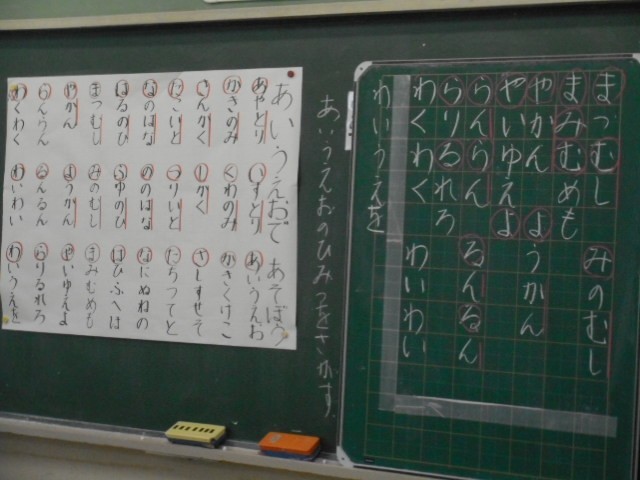 まつむし みのむし
まみむめも
やかん ようかん
やいゆえよ
らんらん るんるん
らりるれろ
わくわく わいわい
わいうえを
あいうえおのひみつをさがす。
あいうえおで あそぼう
あやとり いすとり あいうえお
かきのみ くわのみ かきくけこ
さんかく しかく さしすせそ
たこいと つりいと たちつてと
なのはな ののはな なにぬねの
はるのひ ふゆのひ はひふへほ
まつむし みのむし まみむめも
やかん ようかん やいゆえよ
らんらん るんるん らりるれろ
わくわく わいわい わいうえを